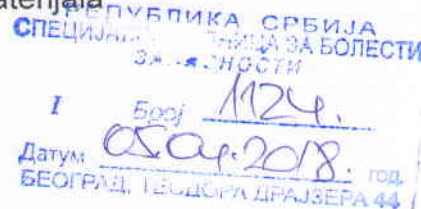 РЕПУБЛИКА СРБИЈА
БОЛНИЦА ЗА БОЛЕСТИ
ЗАВИСНОСТИ
I Број 1124.
Датум 05.04.2018. год.
БЕОГРАД, ТЕОДОРА ДРАЈЗЕРА 44